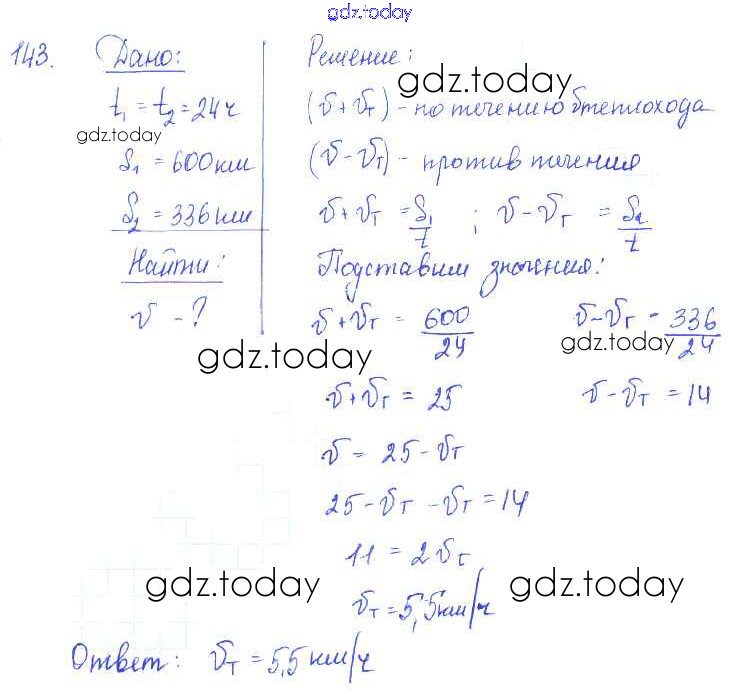 gdz.today
143. Дано:
t₁ = t₂ = 24ч
gdz.today
S₁ = 600км
S₂ = 336км
Найти:
v - ?
Решение:
gdz.today
(v + vт) - по течению теплохода
(v - vт) - против течения
v + vт = S₁/t ; v - vт = S₂/t
Подставим значения:
v + vт = 600/24 v - vт = 336/24
gdz.today
gdz.today
v + vт = 25 v - vт = 14
v = 25 - vт
25 - vт - vт = 14
11 = 2vт
gdz.today
gdz.today
vт = 5,5км/ч
Ответ: vт = 5,5 км/ч